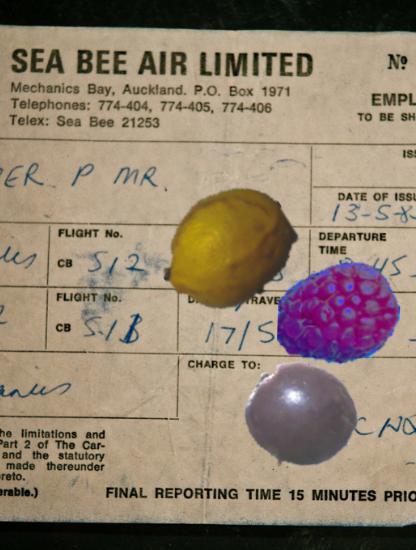 SEA BEE AIR LIMITED Nº
Mechanics Bay, Auckland. P.O. Box 1971
Telephones: 774-404, 774-405, 774-406
Telex: Sea Bee 21253
EMPL
TO BE SH
ISS
ER P MR.
DATE OF ISSU
13-5-8
FLIGHT No.
DEPARTURE
TIME
CB 512
45
FLIGHT No.
TRAVE
CB 511
17/5
CHARGE TO:
he limitations and
Part 2 of The Car-
and the statutory
made thereunder
reto.
erable.) FINAL REPORTING TIME 15 MINUTES PRIO